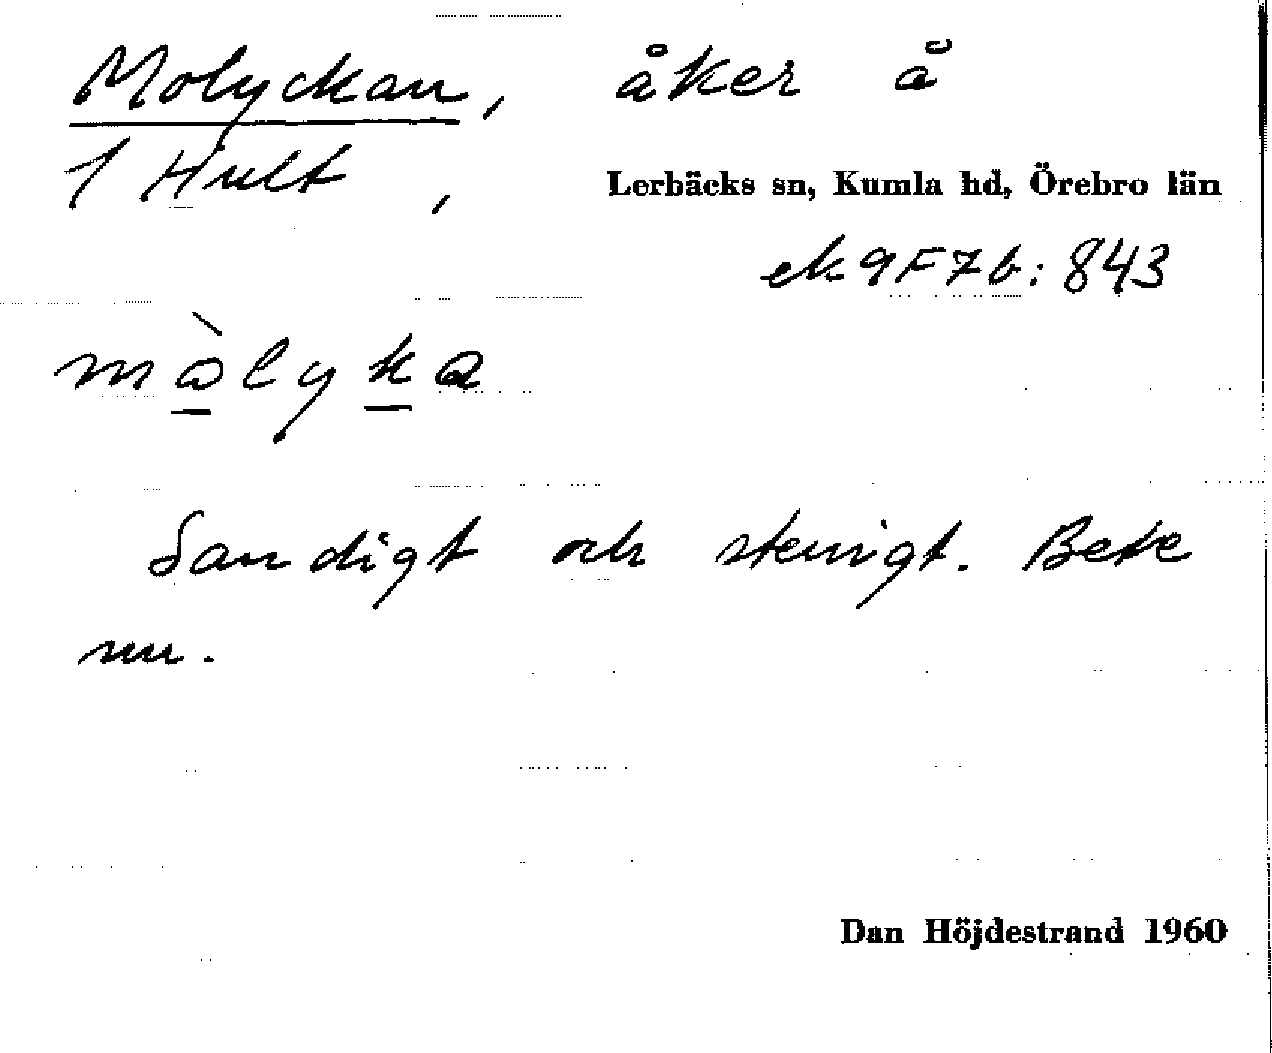 Molyckan, åker å
1 Hult, Lerbäcks sn, Kumla hd, Örebro län
ek 9F7b:843
mòlyka
Sandigt och stenigt. Bete
nu.
Dan Höjdestrand 1960